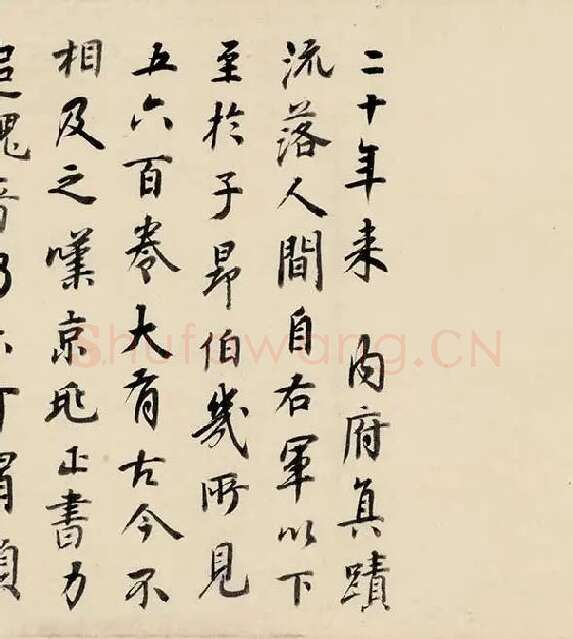 二十年来 内府真蹟
流落人間自右軍以下
至於子昂伯幾所見
五六百卷大有古今不
相及之嘆京兆正書力
追魏晋乃
Shufawang.CN